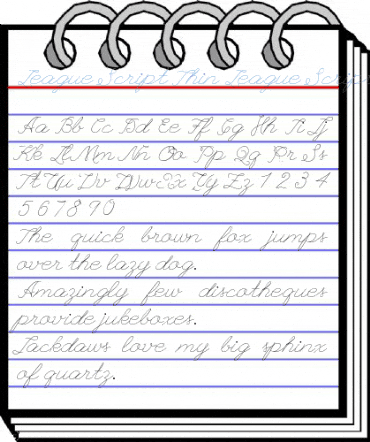 League Script Thin League Scrip
Aa Bb Cc Dd Ee Ff Gg Hh Ii Jj
Kk Ll Mm Nn Oo Pp Qq Rr Ss
Tt Uu Vv Ww Xx Yy Zz 1 2 3 4
5 6 7 8 9 0
The quick brown fox jumps
over the lazy dog.
Amazingly few discotheques
provide jukeboxes.
Jackdaws love my big sphinx
of quartz.